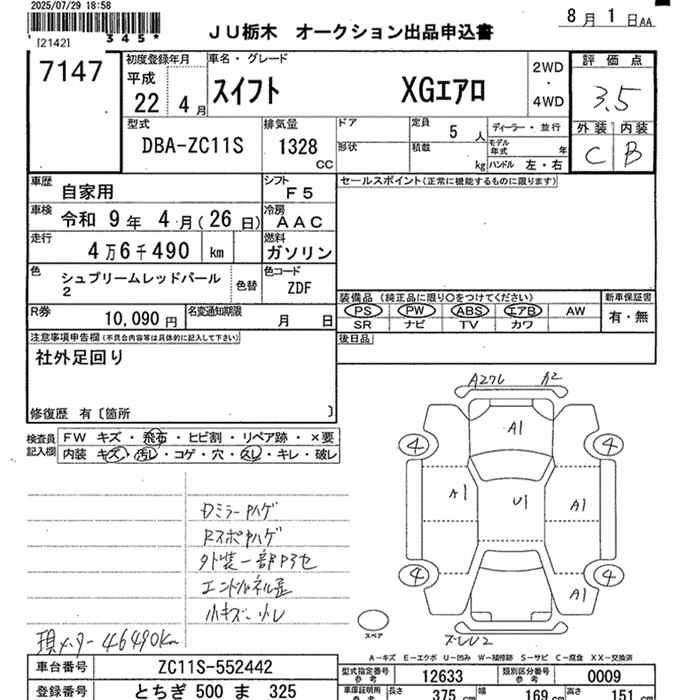 2025/07/29 18:58
[2142]
3 4 5 *
JU栃木 オークション出品申込書
8月 1日 AA
7147
初度登録年月
平成
22 4月
車名・グレード
スイフト XGエアロ
2WD
・
4WD
評価点
3.5
外装 内装
C B
型式
DBA-ZC11S
排気量
1328
CC
ドア
形状
定員 5 人
積載 kg
ディーラー・並行
モデル年式 年
ハンドル 左・右
車歴 自家用
シフト F5
車検 令和 9年 4月(26日)
冷房 AAC
走行 4万6千490 km
燃料 ガソリン
色 シュプリームレッドパール
2
色替
色コード
ZDF
セールスポイント(正常に機能するものに限ります)
装備品(純正品に限り○をつけてください)
PS PW ABS エアB AW
SR ナビ TV カワ
新車保証書
有・無
後日品
R券 10,090円
名変通知期限 月 日
注意事項申告欄(不具合内容等は具体的に記入して下さい)
社外足回り
修復歴 有〔箇所 〕
検査員記入欄
FW キズ・飛石・ヒビ割・リペア跡・×要
内装 キズ・汚レ・コゲ・穴・スレ・キレ・破レ
Dミラーハゲ
Rスポハゲ
小キズ・小レ
現メーター 46490Km
A2 A2
A1
4 4
A1 U1 A1
4 4
A1
スペア
A-キズ E-エクボ U-凹み W-補修跡 S-サビ C-腐食 XX-交換済
車台番号 ZC11S-552442
型式指定番号 参考 12633
類別区分番号 参考 0009
登録番号 とちぎ 500 ま 325
車庫証明所 参考 長さ 375 cm 幅 169 cm 高さ 151 cm